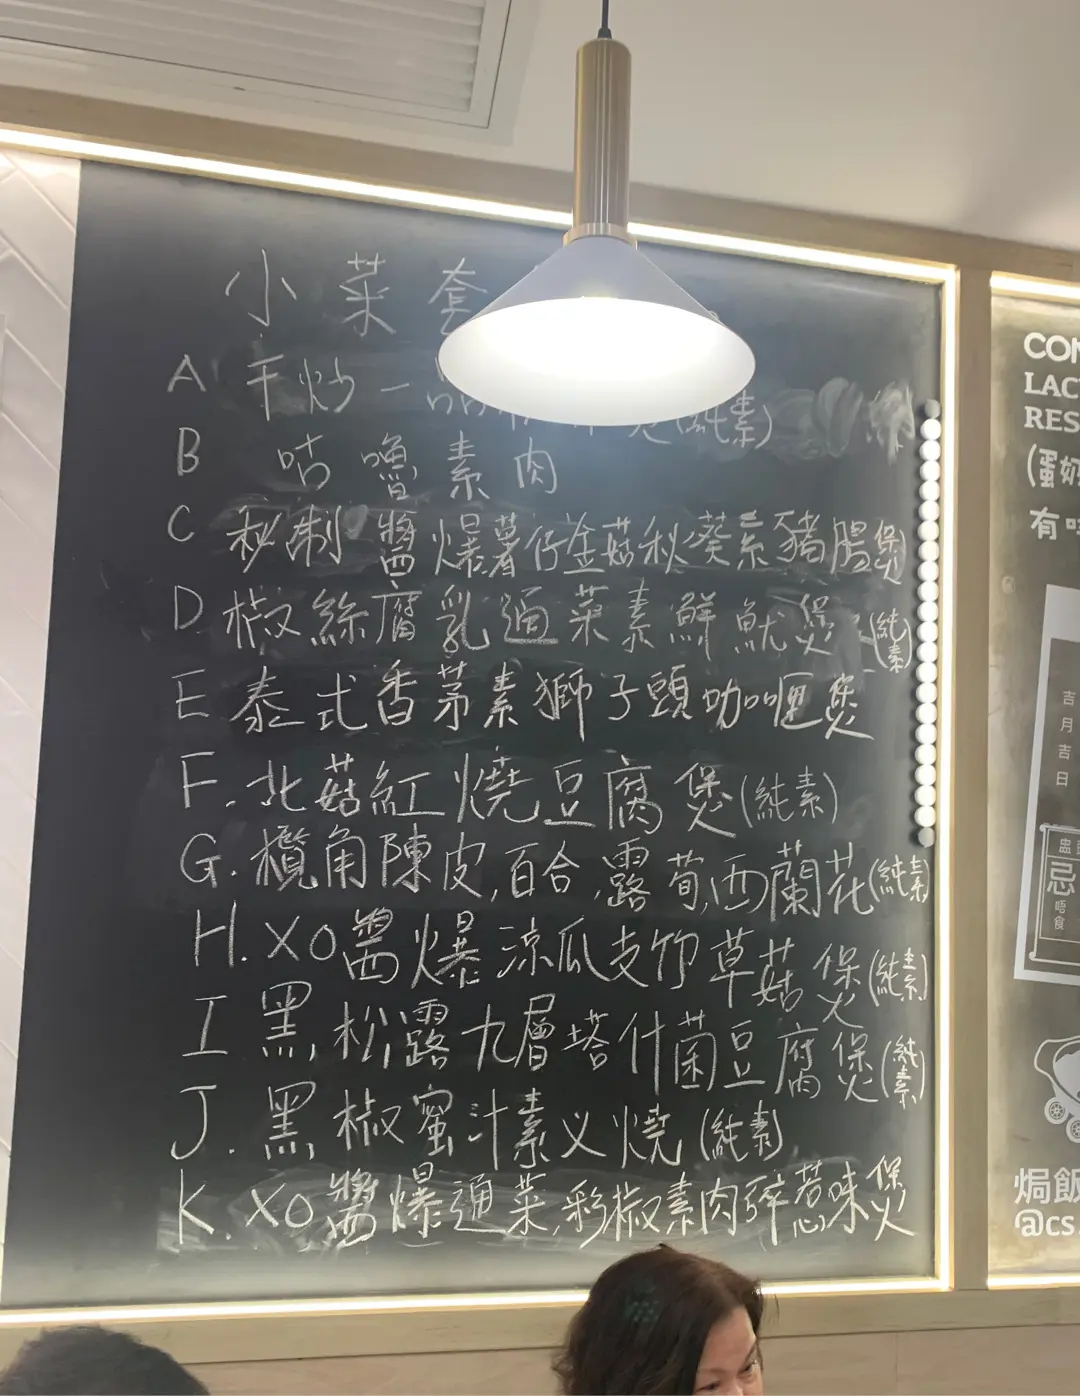 小菜套
A 干炒一品 (純素)
B 咕嚕素肉
C 秘制醬爆薯仔金菇秋葵素豬腸煲
D 椒絲腐乳通菜素鮮魷煲 (純素)
E 泰式香茅素獅子頭咖喱煲
F. 北菇紅燒豆腐煲(純素)
G. 欖角陳皮,百合,露荀,西蘭花(純素)
H. XO醬爆涼瓜支竹草菇煲(純素)
I 黑松露九層塔什菌豆腐煲(純素)
J. 黑椒蜜汁素义燒(純素)
K. XO醬爆通菜,彩椒素肉碎惹味煲
CON
LAC
RES
(蛋奶
有
吉月吉日
忌
唔食
焗飯
@cs.